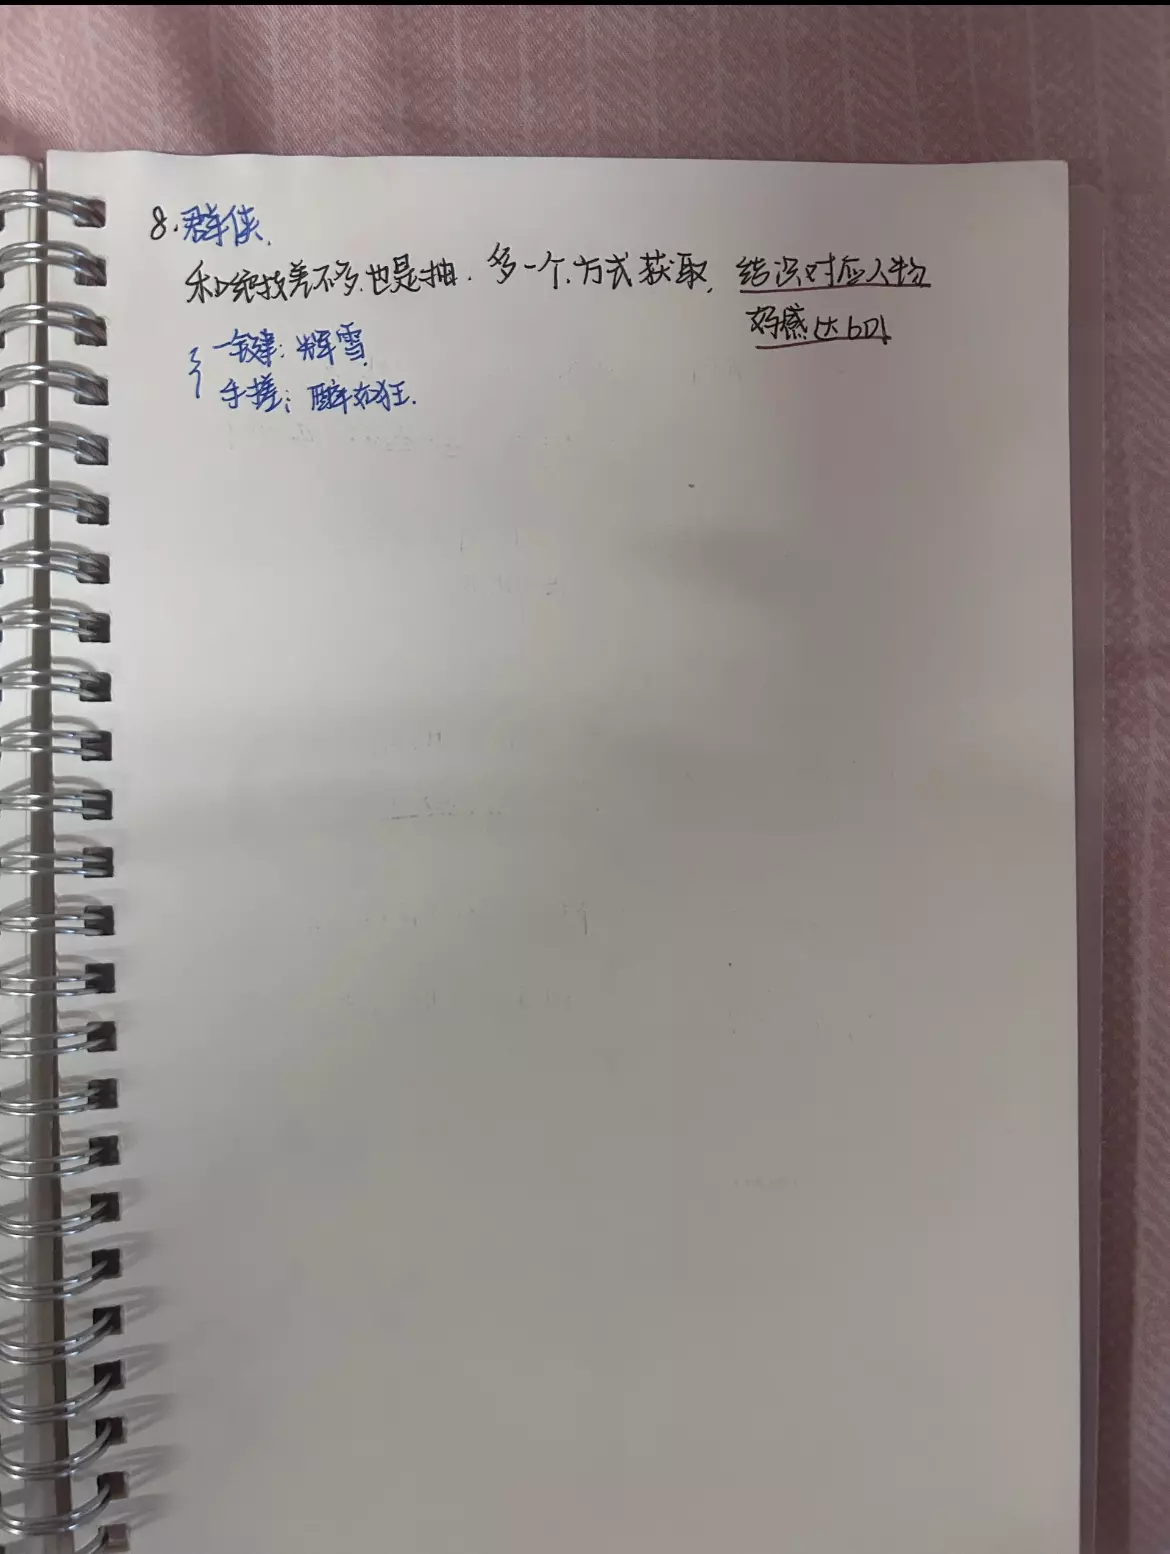 8.群侠.
和绝技差不多.也是抽.多一个.方式获取.结识对应人物
好感达60以
一键:辉雪
手搓:醉和狂.